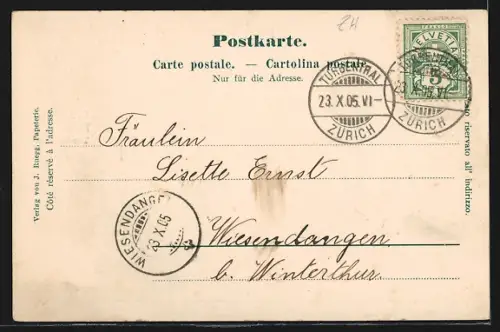 ZH
Postkarte.
Carte postale. — Cartolina postale.
Nur für die Adresse.
HELVETIA
5
TURBENTHAL
23.X.05.VI–
ZÜRICH
TURBENTHAL
23.X.05.VI–
ZÜRICH
Fräulein
Lisette Ernst
Wiesendangen
b. Winterthur.
WIESENDANGEN
23 X 05
Verlag von J. Ruegg, Papeterie.
Côté réservé à l'adresse.
Lato riservato all' indirizzo.